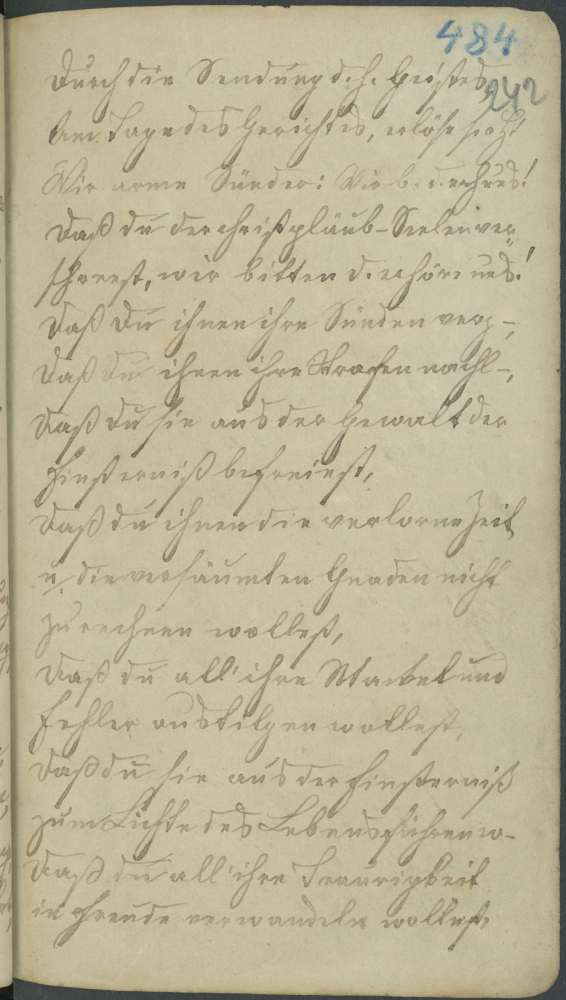 484
242
Durch die Sendung d. h. Geistes,
Am Tage des Gerichtes, erlöse s. o H!
Wir arme Sünder: Wir b. d. erh. uns!
Daß du der christgläub- Seelen ver„
schonest, wir bitten d. erhöre uns!
Daß du ihnen ihre Sünden verg-,
Daß du ihnen ihre Strafen nachl-,
Daß du sie aus der Gewalt der
Finsterniß befreiest,
Daß du ihnen die verlorne Zeit
u. die versäumten Gnaden nicht
zurechnen wollest,
Daß du all' ihre Makel und
Fehler austilgen wollest,
Daß du sie aus der Finsterniß
zum Lichte des Lebens führen w-
Daß du all' ihre Traurigkeit
in Freude verwandeln wollest,